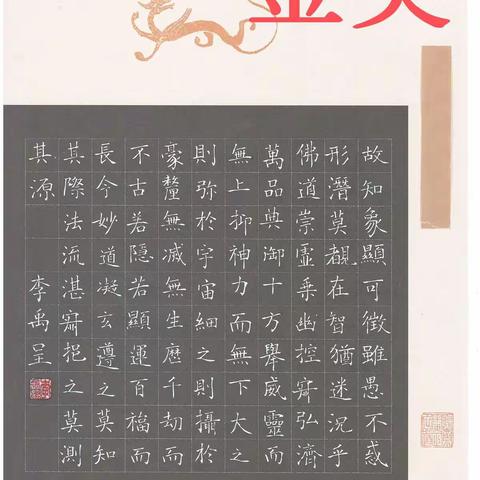 故知象顯可徵雖愚不惑
形潛莫覩在智猶迷況乎
佛道崇虛乘幽控寂弘濟
萬品典御十方舉威靈而
無上抑神力而無下大之
則弥於宇宙細之則攝於
豪釐無滅無生歷千劫而
不古若隱若顯運百福而
長今妙道凝玄遵之莫知
其際法流湛寂挹之莫測
其源 李禹呈